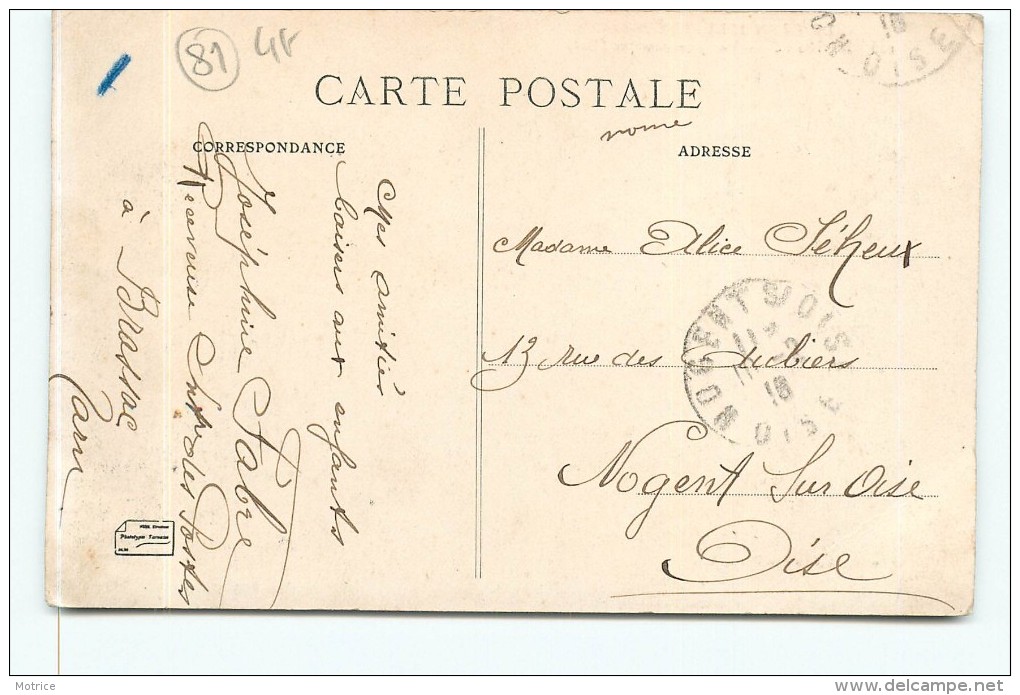 81
4f
CARTE POSTALE
CORRESPONDANCE
ADRESSE
Mes amitiés
baisers aux enfants
Joséphine Fabre
Receveuse des Postes
à Brassac
Tarn
Madame Alice Séheux
13 rue des
Nogent Sur Oise
Oise
NOGENT S/ OISE
OISE
18
OISE
18
Phototypie Tarnaise
Motrice
www.delcampe.net